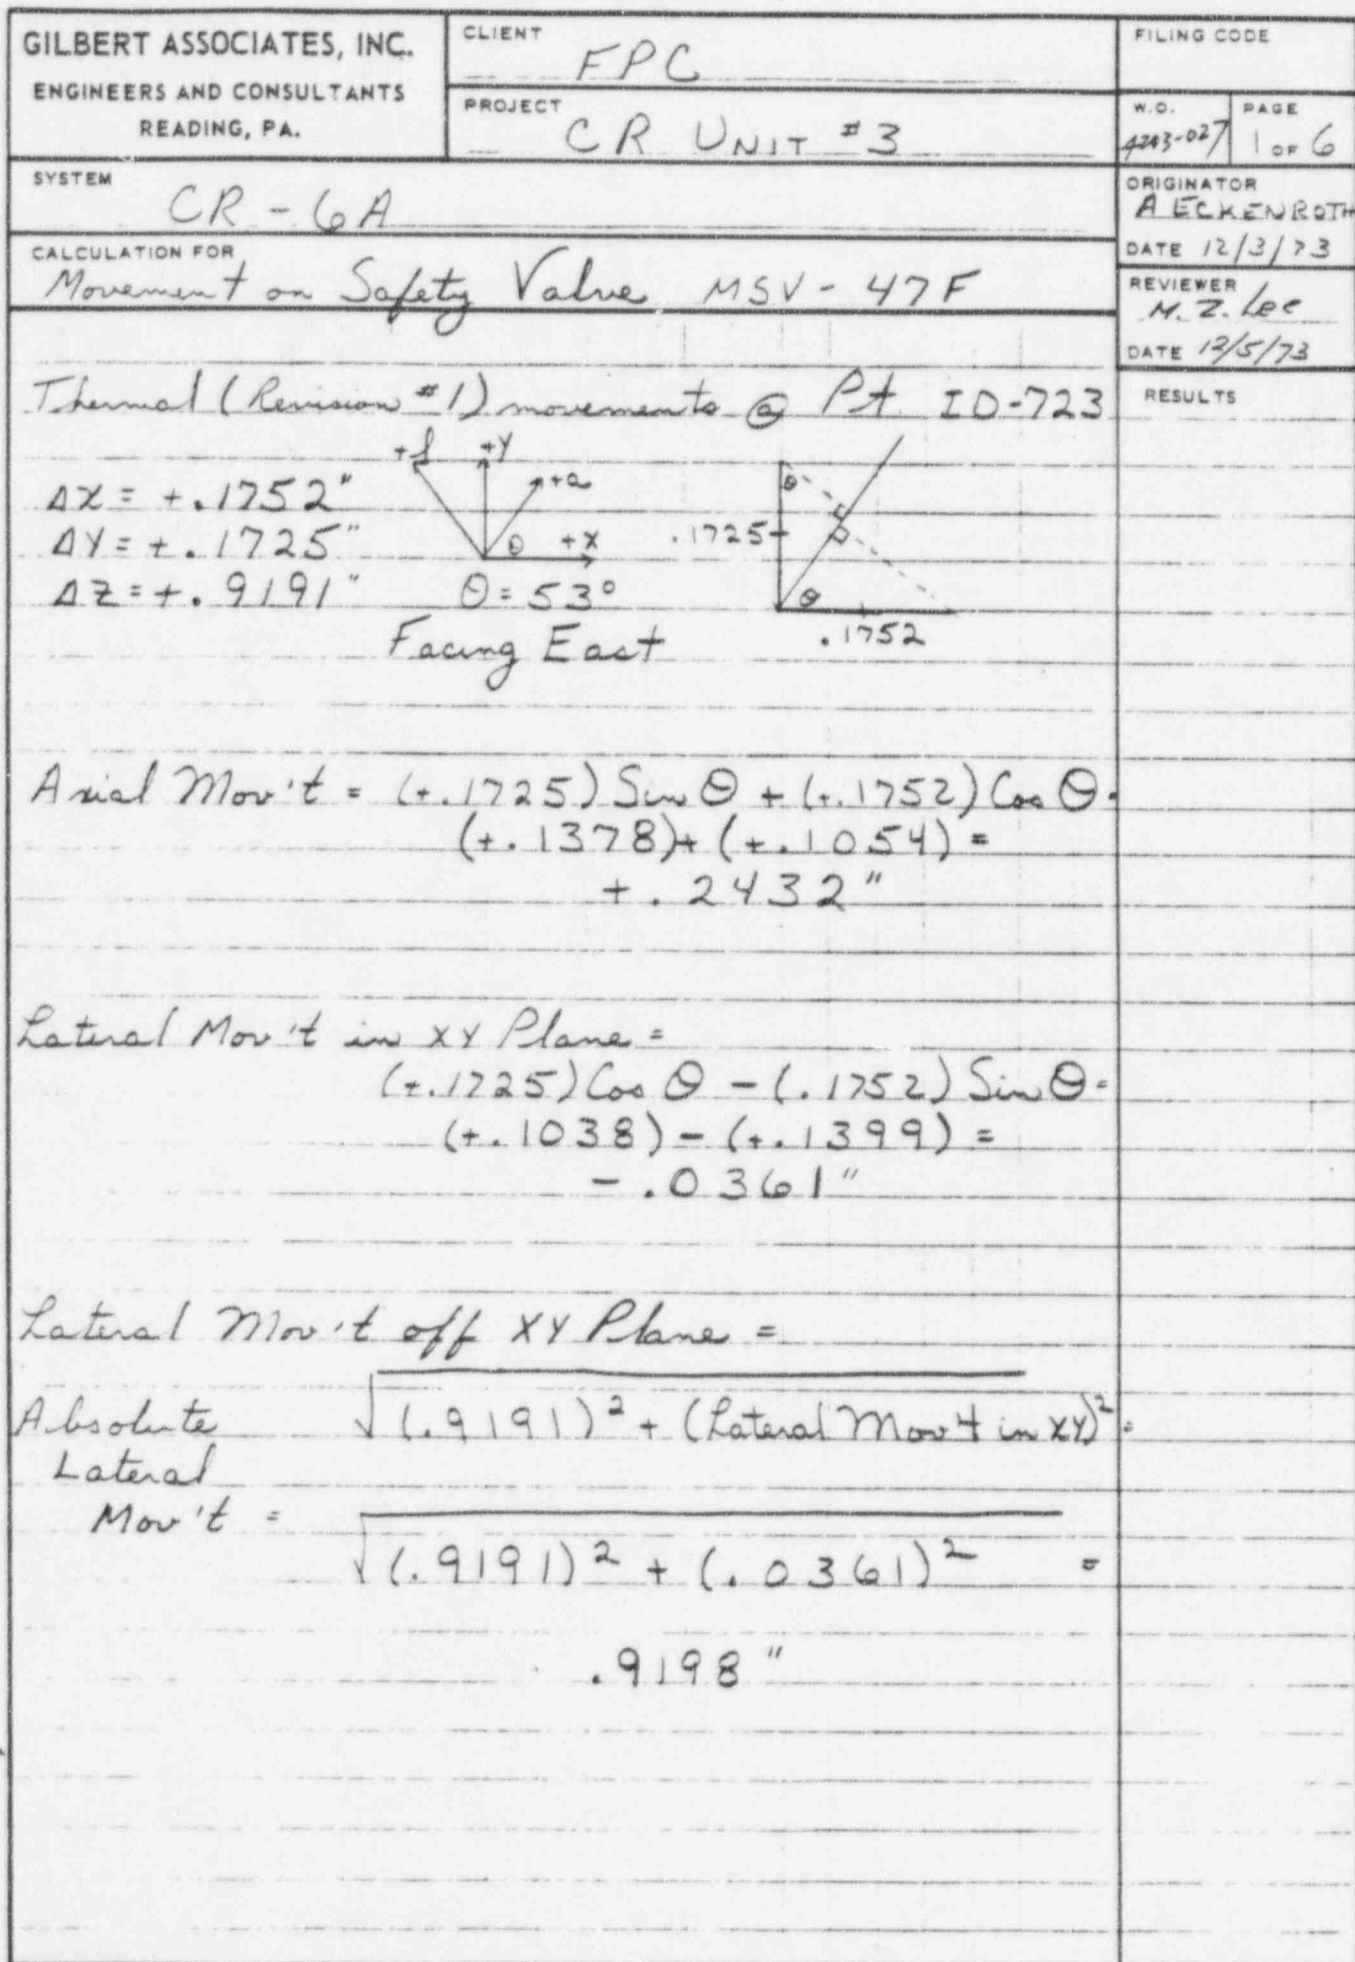 GILBERT ASSOCIATES, INC.
ENGINEERS AND CONSULTANTS
READING, PA.
CLIENT
FPC
PROJECT
CR UNIT #3
FILING CODE
W.O.
4203-027
PAGE
1 OF 6
SYSTEM
CR-6A
ORIGINATOR
A ECKENROTH
DATE 12/3/73
CALCULATION FOR
Movement on Safety Valve MSV-47F
REVIEWER
M. Z. Lee
DATE 12/5/73
RESULTS
Thermal (Revision #1) movements @ Pt ID-723
ΔX = +.1752"
ΔY = +.1725"
ΔZ = +.9191"
+l
+Y
+a
θ
+X
θ = 53°
Facing East
θ
.1725
θ
.1752
Axial Mov't = (+.1725) Sin θ + (+.1752) Cos θ =
(+.1378)+ (+.1054) =
+.2432"
Lateral Mov't in XY Plane =
(+.1725) Cos θ - (.1752) Sin θ =
(+.1038) - (+.1399) =
-.0361"
Lateral Mov't off XY Plane =
√(.9191)² + (Lateral Mov't in XY)² =
Absolute
Lateral
Mov't =
√(.9191)² + (.0361)² =
.9198"